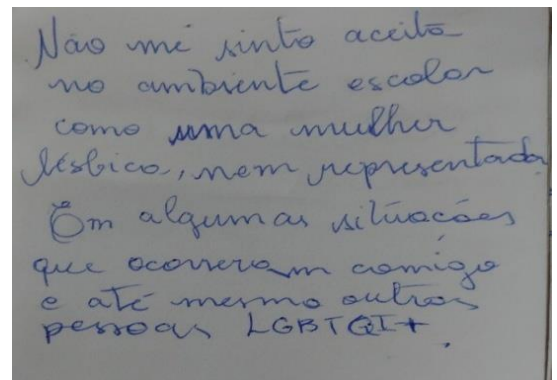 Não me sinto aceita
no ambiente escolar
como uma mulher
lésbica, nem representada
Em algumas situações
que ocorreram comigo
e até mesmo outras
pessoas LGBTQI+.